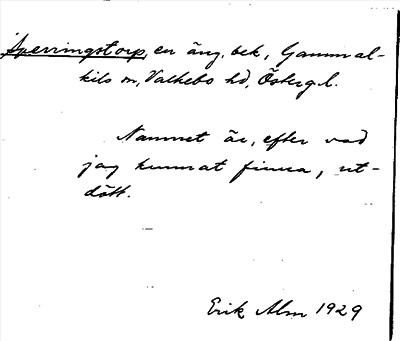 Sperringstorp, en äng, bek, Gammal-
kils sn, Valkebo hd, Östergl.
Namnet är, efter vad
jag kunnat finna, ut-
dött.
Erik Alm 1929